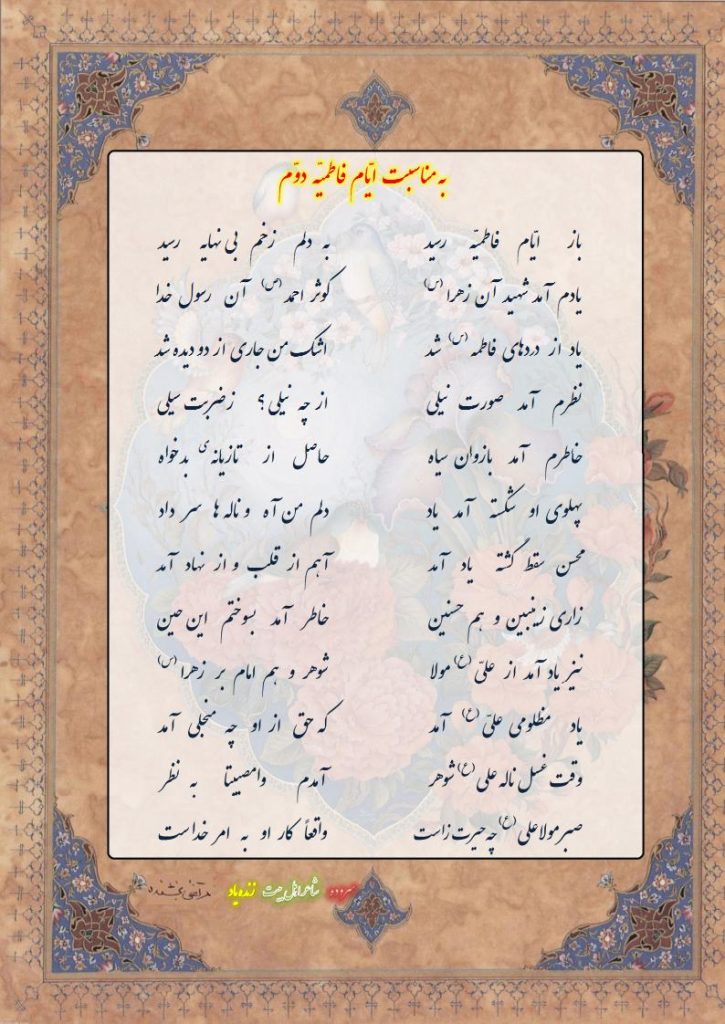 به مناسبت ایّام فاطمیّه دوّم
باز ایّام فاطمیّه رسید به دلم زخم بی نهایه رسید
یادم آمد شهید آن زهرا (س) کوثر احمد (ص) آن رسول خدا
یاد از دردهای فاطمه (س) شد اشک من جاری از دو دیده شد
نظرم آمد صورت نیلی از چه نیلی؟ زضربت سیلی
خاطرم آمد بازوان سیاه حاصل از تازیانه ی بدخواه
پهلوی او شکسته آمد یاد دلم من آه و ناله ها سر داد
محسن سقط گشته یاد آمد آهم از قلب و از نهاد آمد
زاری زینبین و هم حسنین خاطر آمد بسوختم این حین
نیز یاد آمد از علیّ (ع) مولا شوهر و هم امام بر زهرا (س)
یاد مظلومی علیّ (ع) آمد که حق از او چه منجلی آمد
وقت غسل ناله علی (ع) شوهر آمدم وامصیبتا به نظر
صبر مولا علی (ع) چه حیرت زاست واقعاً کار او به امر خداست
سروده شاعر اهل بیت زنده یاد